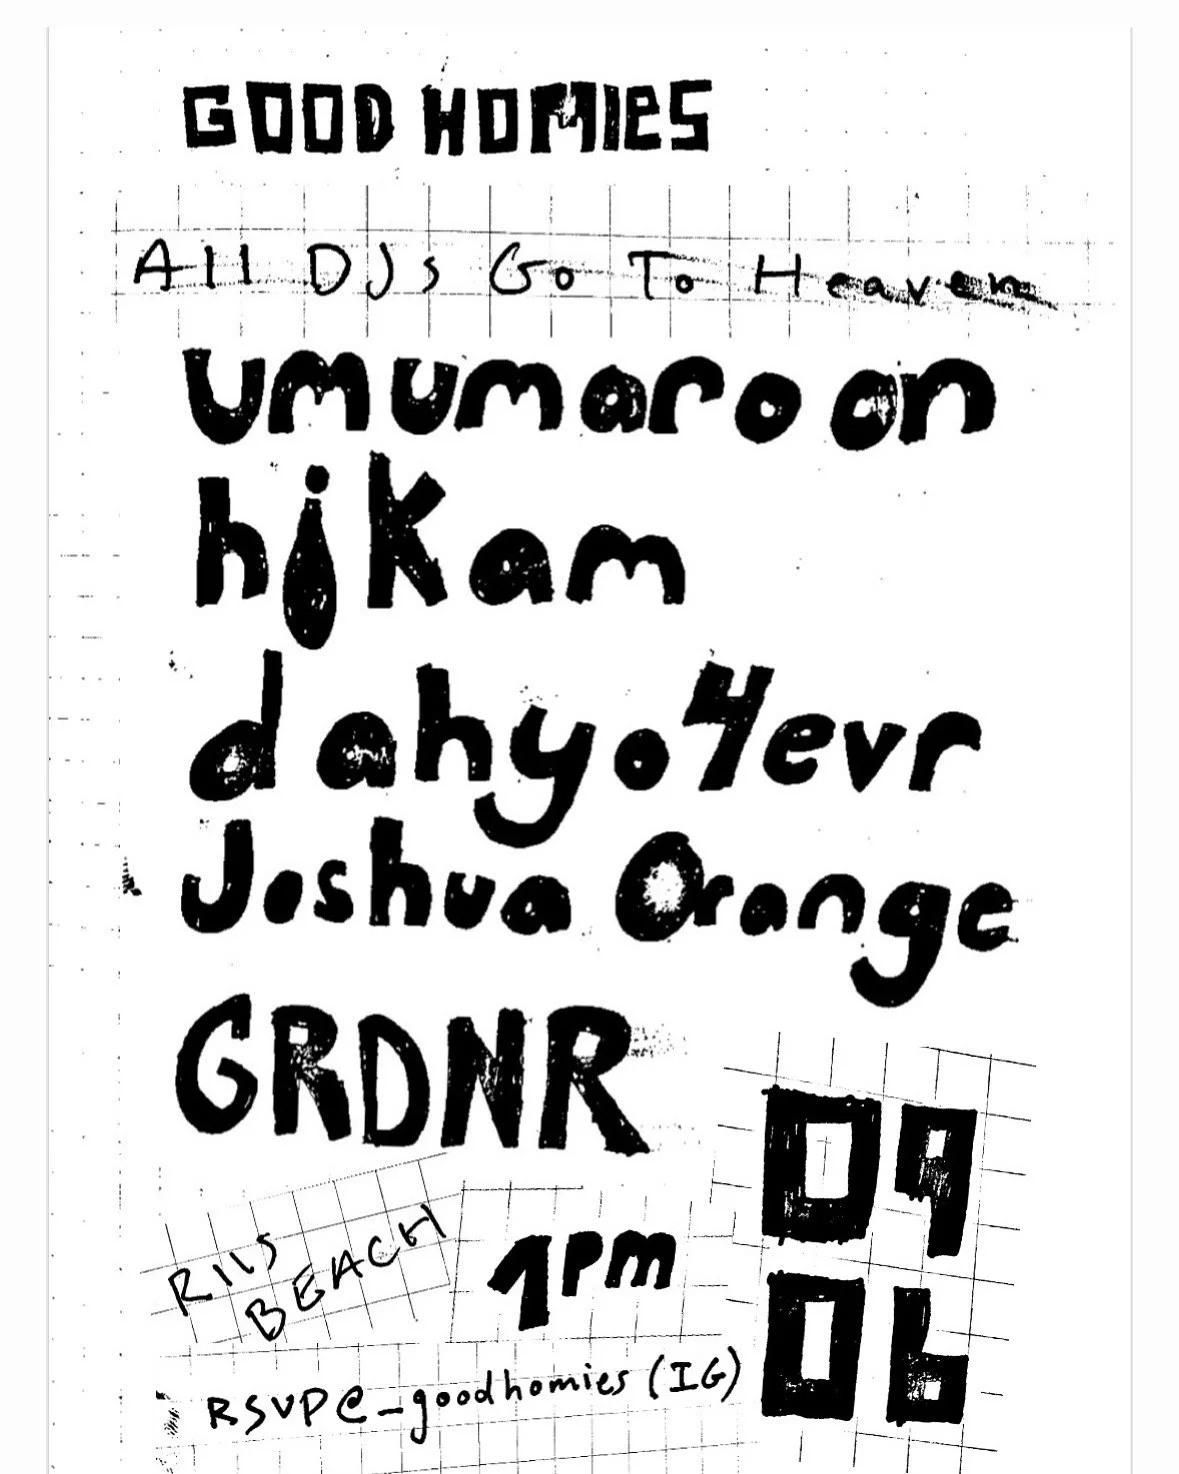 GOOD HOMIES
All DJs Go To Heaven
umumaroon
hikam
dahyo4evr
Joshua Orange
GRDNR
RIIS
BEACH
1pm
09
06
RSVP@_goodhomies (IG)